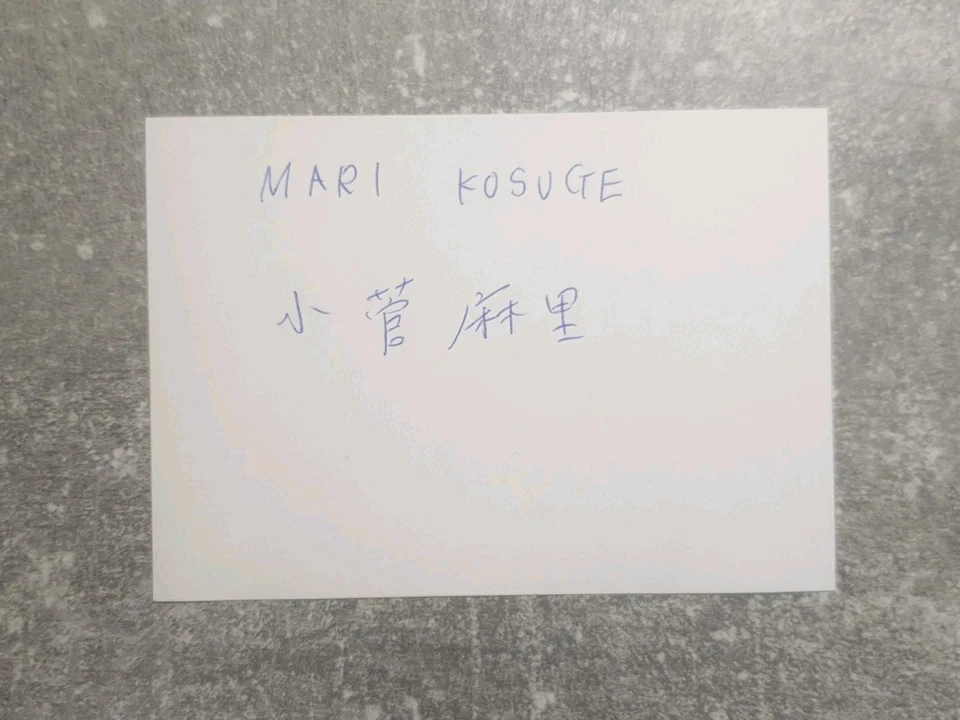 MARI KOSUGE
小菅麻里